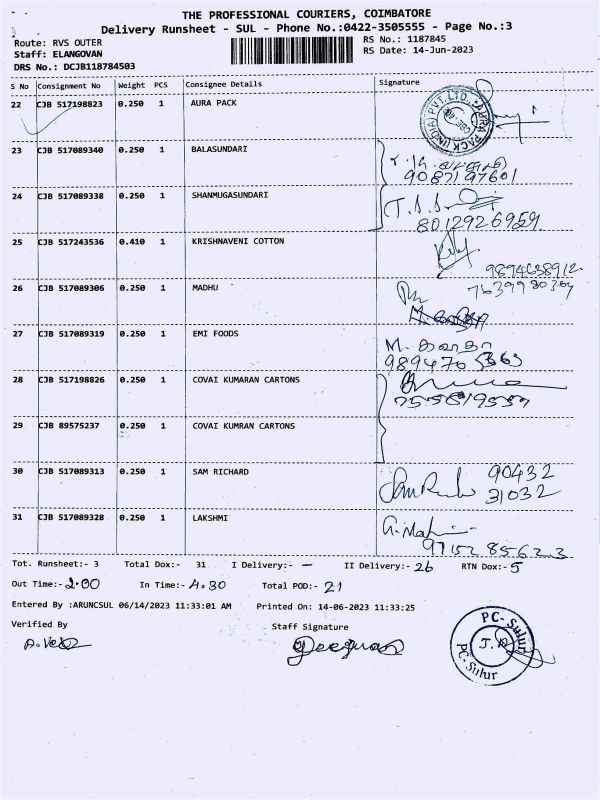 THE PROFESSIONAL COURIERS, COIMBATORE
Delivery Runsheet - SUL - Phone No.:0422-3505555 - Page No.:3
Route: RVS OUTER
RS No.: 1187845
Staff: ELANGOVAN
RS Date: 14-Jun-2023
DRS No.: DCJB118784503
S No Consignment No Weight PCS Consignee Details Signature
22 CJB 517198823 0.250 1 AURA PACK
AURA PACK (INDIA) PVT. LTD.
23 CJB 517089340 0.250 1 BALASUNDARI
9087197601
24 CJB 517089338 0.250 1 SHANMUGASUNDARI
T.S.S
8012926959
25 CJB 517243536 0.410 1 KRISHNAVENI COTTON
9894638912
26 CJB 517089306 0.250 1 MADHU
27 CJB 517089319 0.250 1 EMI FOODS
M. கவிதா
28 CJB 517198826 0.250 1 COVAI KUMARAN CARTONS
29 CJB 89575237 0.250 1 COVAI KUMRAN CARTONS
30 CJB 517089313 0.250 1 SAM RICHARD
90432
31032
31 CJB 517089328 0.250 1 LAKSHMI
97152 85623
Tot. Runsheet:- 3 Total Dox:- 31 I Delivery:- - II Delivery:- 26 RTN Dox:- 5
Out Time:- 2.00 In Time:- 4.30 Total POD:- 21
Entered By :ARUNCSUL 06/14/2023 11:33:01 AM Printed On: 14-06-2023 11:33:25
Verified By
Staff Signature
PC-Sulur
PC-Sulur